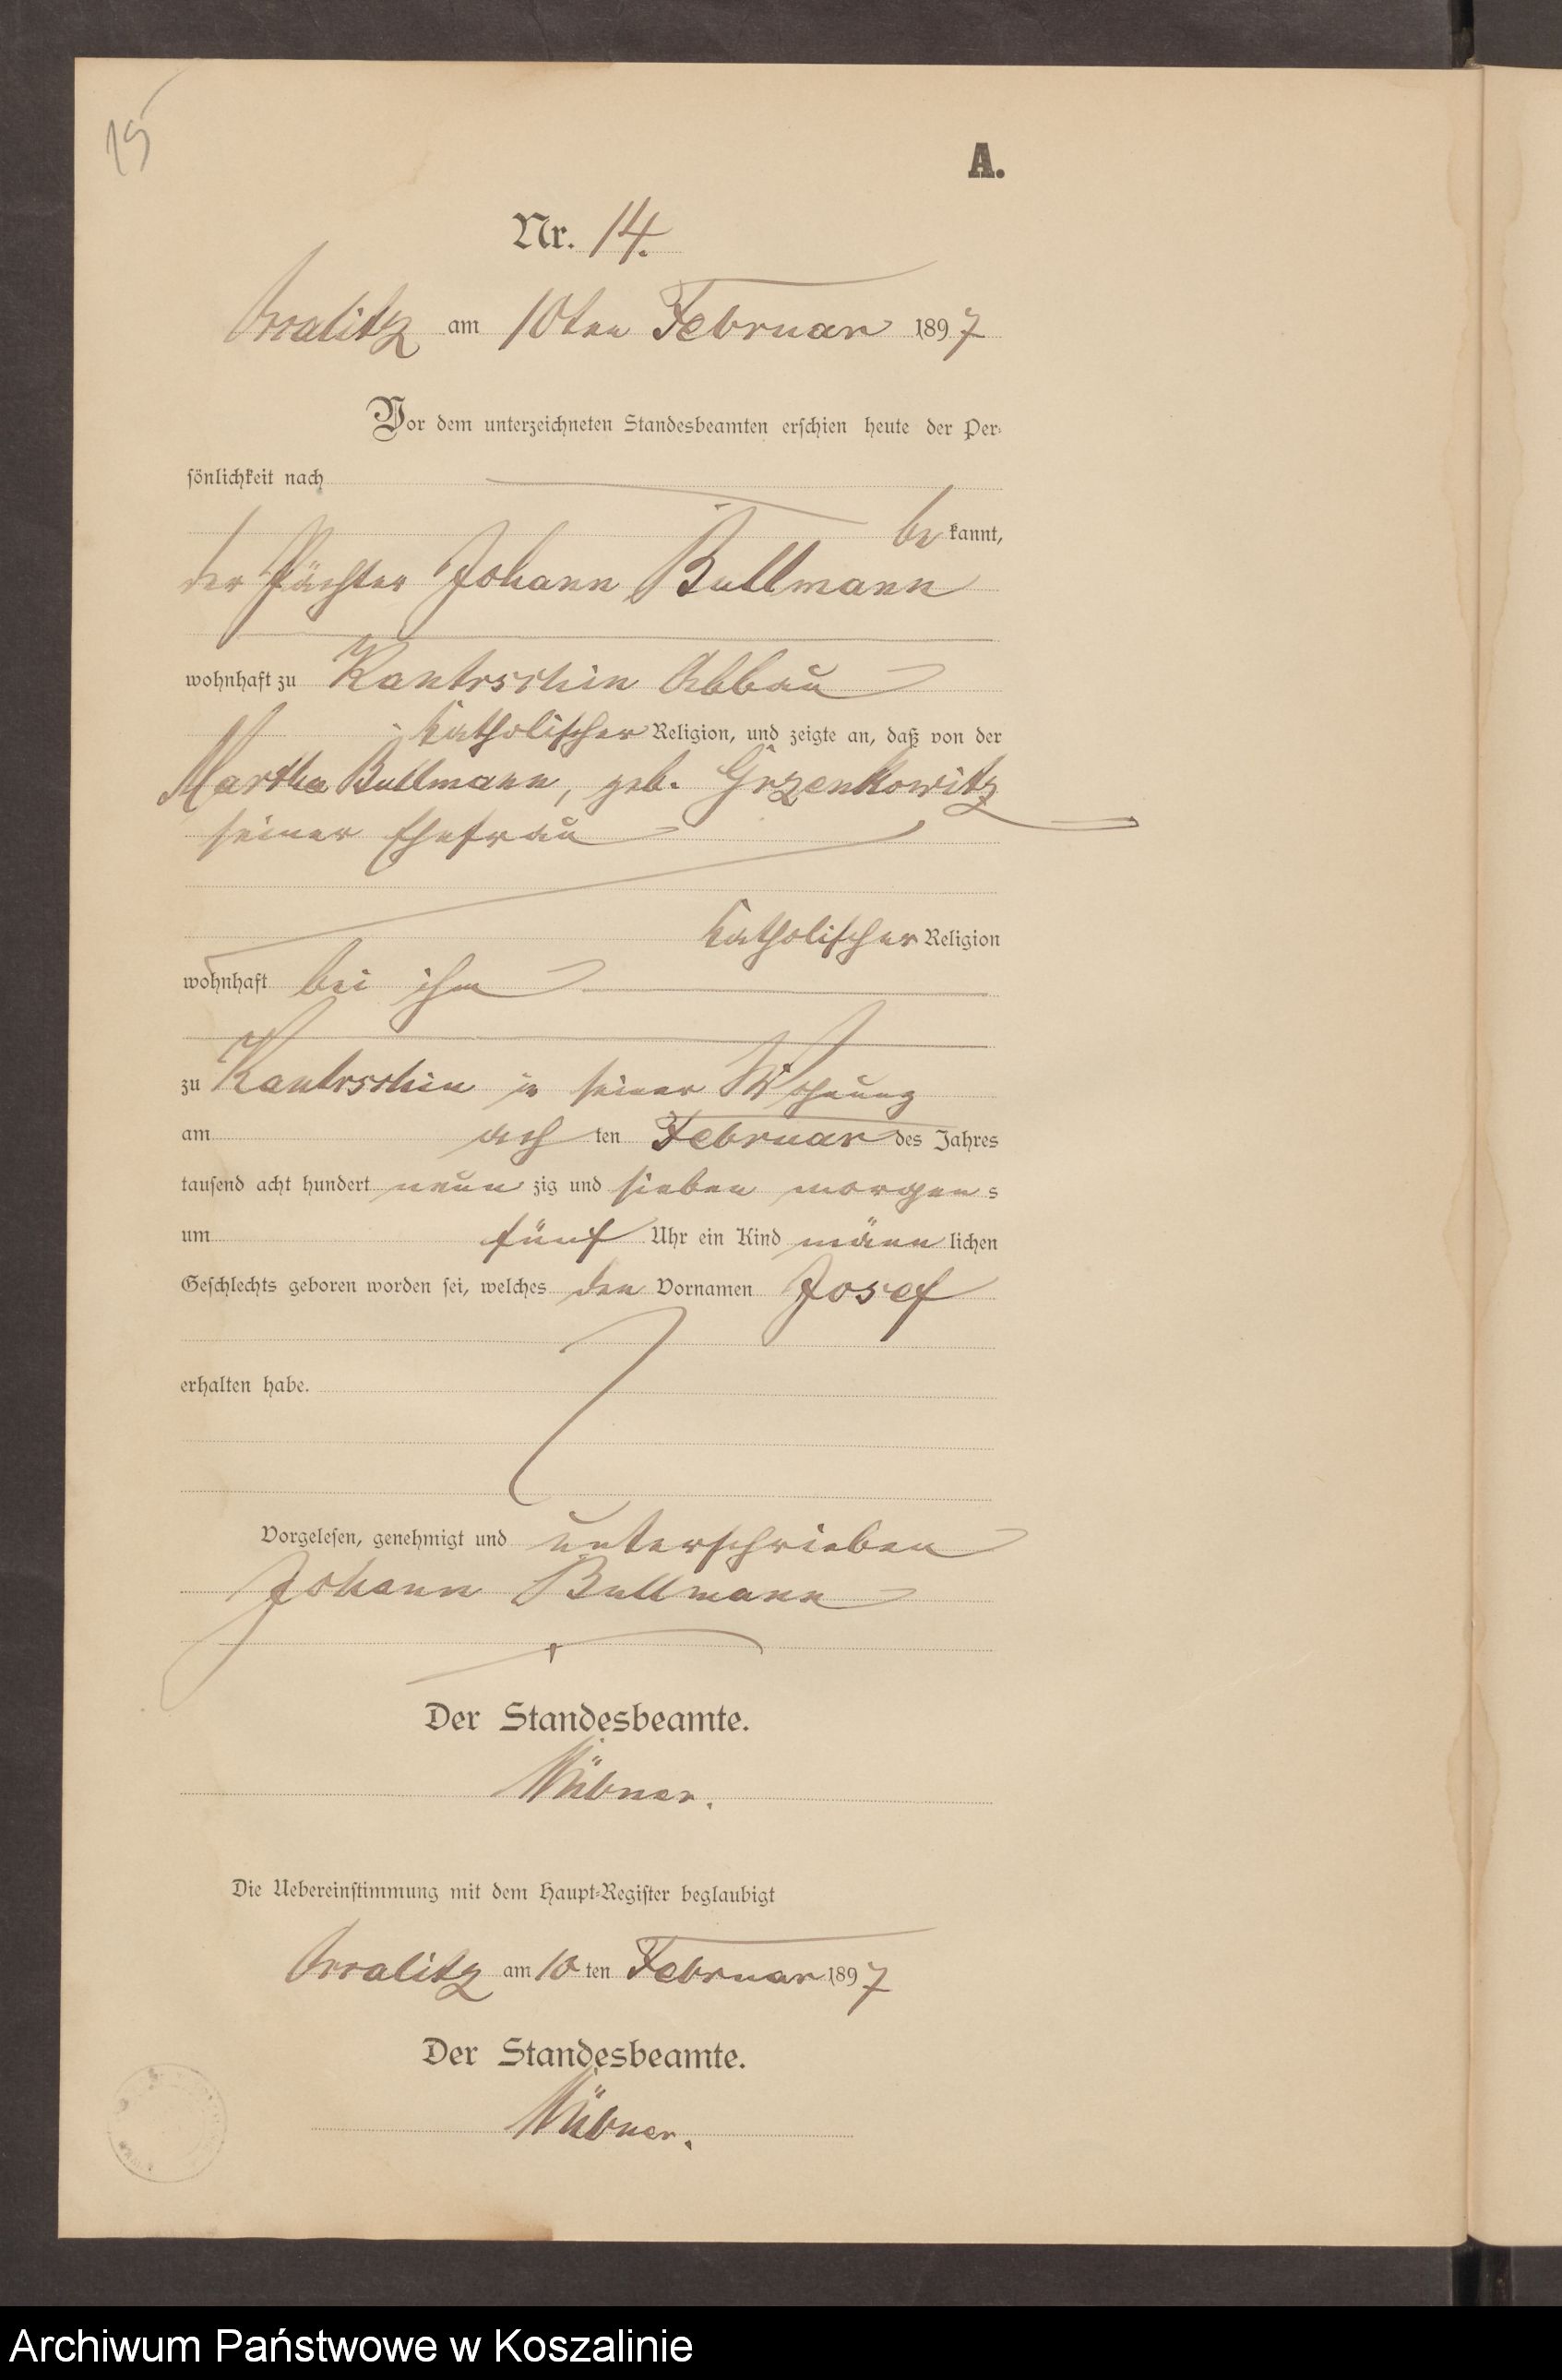 15
A.
Nr. 14.
am 10ten Februar 1897
Vor dem unterzeichneten Standesbeamten erschien heute der Per-
sönlichkeit nach
be kannt,
der Pächter Johann Bullmann
wohnhaft zu Kantrschin Abbau
katholischer Religion, und zeigte an, daß von der
Martha Bullmann, geb. Grzenkowitz
seiner Ehefrau
katholischer Religion
wohnhaft bei ihm
zu Kantrschin in seiner Wohnung
am ach ten Februar des Jahres
tausend acht hundert neun zig und sieben morgen s
um fünf Uhr ein Kind männ lichen
Geschlechts geboren worden sei, welches den Vornamen Josef
erhalten habe.
Vorgelesen, genehmigt und unterschrieben
Johann Bullmann
Der Standesbeamte.
Die Uebereinstimmung mit dem Haupt-Register beglaubigt
am 10 ten Februar 1897
Der Standesbeamte.
Archiwum Państwowe w Koszalinie